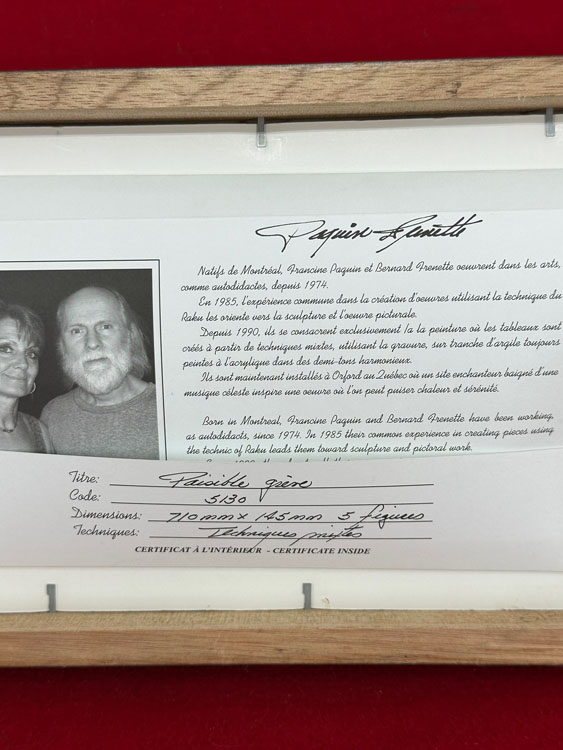 Paquin-Frenette
Natifs de Montréal, Francine Paquin et Bernard Frenette oeuvrent dans les arts,
comme autodidactes, depuis 1974.
En 1985, l'expérience commune dans la création d'oeuvres utilisant la technique du
Raku les oriente vers la sculpture et l'oeuvre picturale.
Depuis 1990, ils se consacrent exclusivement la la peinture où les tableaux sont
créés à partir de techniques mixtes, utilisant la gravure, sur tranche d'argile toujours
peintes à l'acrylique dans des demi-tons harmonieux.
Ils sont maintenant installés à Orford au Québec où un site enchanteur baigné d'une
musique céleste inspire une oeuvre où l'on peut puiser chaleur et sérénité.
Born in Montreal, Francine Paquin and Bernard Frenette have been working,
as autodidacts, since 1974. In 1985 their common experience in creating pieces using
the technic of Raku leads them toward sculpture and pictoral work.
Titre: Paisible grève
Code: 5130
Dimensions: 710mm x 145mm 5 figures
Techniques: Techniques mixtes
CERTIFICAT À L'INTÉRIEUR - CERTIFICATE INSIDE